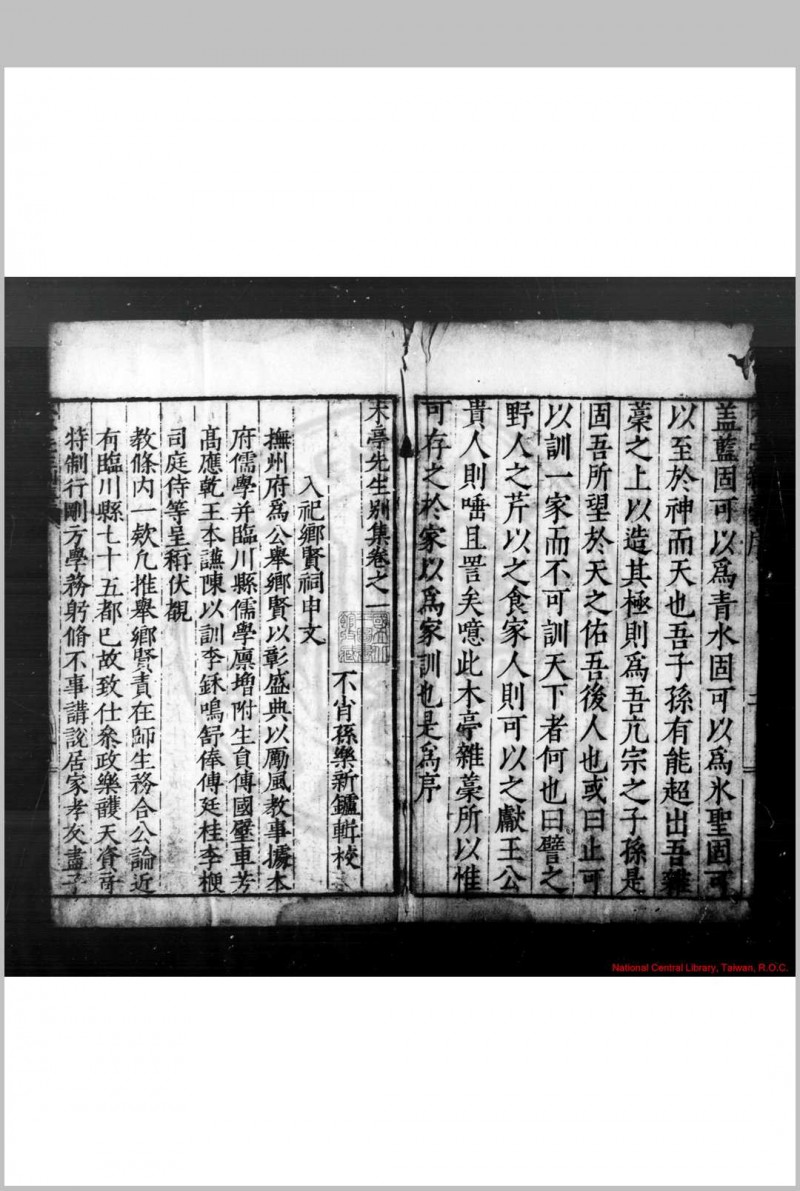 盖藍固可以爲青水固可以爲氷聖固可
以至於神而天也吾子孫有能超出吾雜
藁之上以造其極則爲吾亢宗之子孫是
固吾所望於天之佑吾後人也或曰止可
以訓一家而不可訓天下者何也曰譬之
野人之芹以之食家人則可以之獻王公
貴人則唾且詈矣噫此木亭雜藁所以惟
可存之於家以爲家訓也是爲序
木亭先生别集卷之一
不肖孫樂新鑪輯校
入祀鄉賢祠申文
撫州府爲公舉鄉賢以彰盛典以勵風教事據本
府儒學并臨川縣儒學廪增附生員傅國璧車芳
髙應乾王本讌陳以訓李鉌鳴舒俸傅廷桂李梗
司庭侍等呈稱伏覩
教條内一欵凢推舉鄉賢責在師生務合公論近
有臨川縣七十五都已故致仕叅政樂頀天資奇
特制行剛方學務躬脩不事講說居家孝友盡
National Central Library, Taiwan, R.O.C.